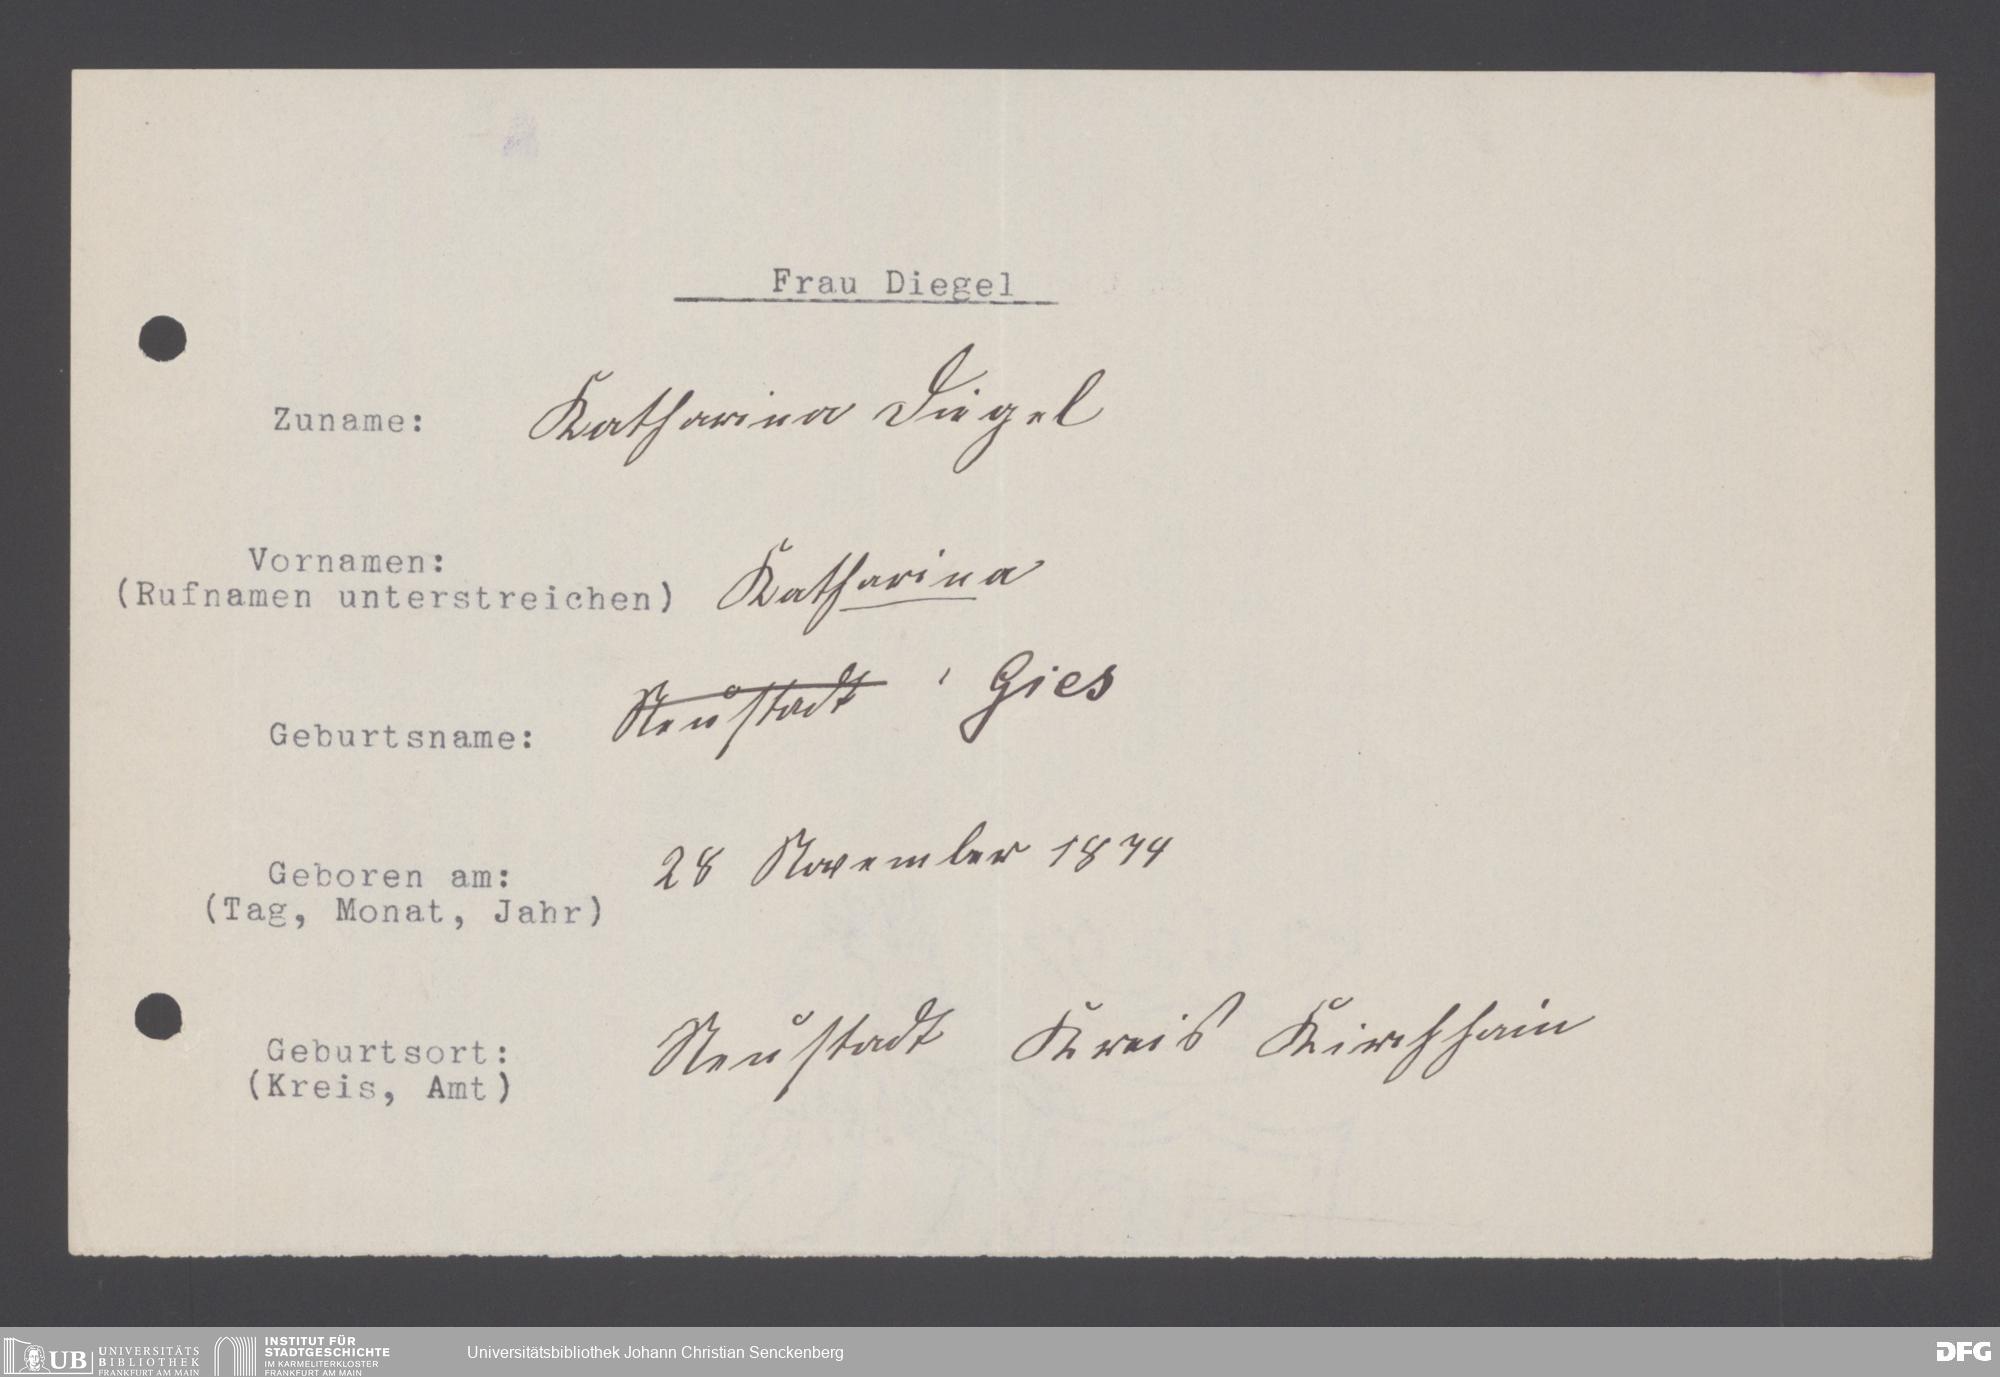 Frau Diegel
Zuname: Katharina Diegel
Vornamen:
(Rufnamen unterstreichen) Katharina
Geburtsname: Neustadt Gies
Geboren am: 28 November 1874
(Tag, Monat, Jahr)
Geburtsort: Neustadt Kreis Kirchhain
(Kreis, Amt)
UB UNIVERSITÄTS
BIBLIOTHEK
FRANKFURT AM MAIN
INSTITUT FÜR
STADTGESCHICHTE
IM KARMELITERKLOSTER
FRANKFURT AM MAIN
Universitätsbibliothek Johann Christian Senckenberg
DFG